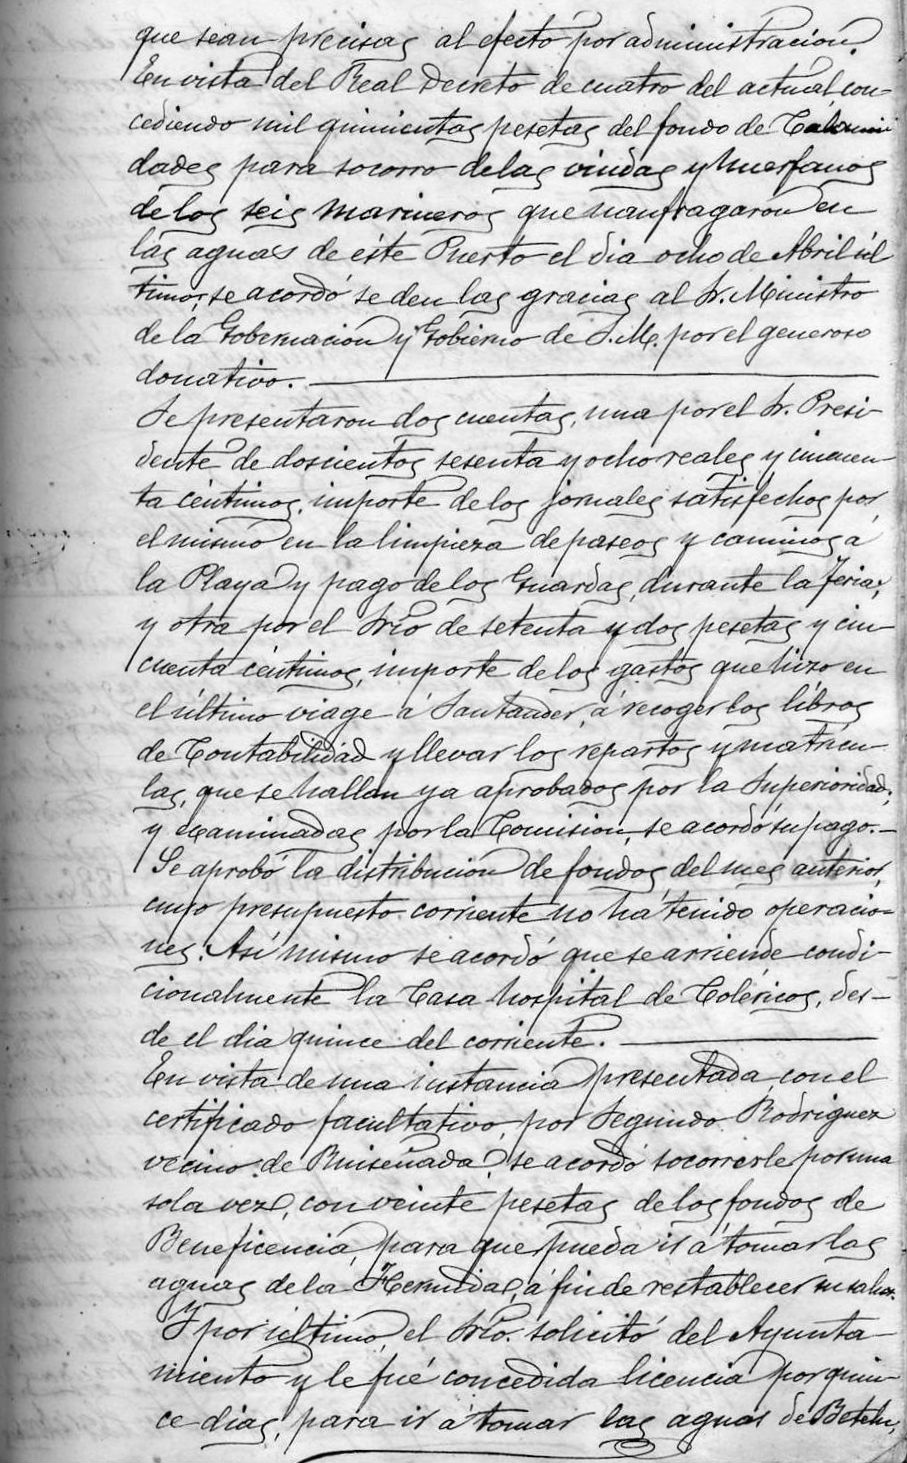 que sean precisas al efecto por administracion.
En vista del Real Decreto de cuatro del actual, con-
cediendo mil quinientas pesetas del fondo de Calami
dades para socorro de las viudas y huerfanos
de los seis marineros que naufragaron en
las aguas de éste Puerto el dia ocho de Abril úl
timo, se acordó se den las gracias al Sr. Ministro
de la Gobernación y Gobierno de S. M. por el generoso
donativo.
Se presentaron dos cuentas, una por el Sr. Presi-
dente de doscientos sesenta y ocho reales y cincuen-
ta céntimos, importe de los jornales satisfechos por
el mismo en la limpieza de paseos y caminos á
la Playa y pago de los Guardas, durante la feria;
y otra por el Srio de setenta y dos pesetas y cin-
cuenta céntimos, importe de los gastos que hizo en
el último viage á Santander, á recoger los libros
de Contabilidad y llevar los repartos y matricu-
las, que se hallan ya aprobados por la Superioridad;
y examinadas por la Comision, se acordó su pago.-
Se aprobó la distribucion de fondos del mes anterior,
cuyo presupuesto corriente no ha tenido operacio-
nes. Así mismo se acordó que se arriende condi-
cionalmente la Casa hospital de Coléricos, des-
de el dia quince del corriente.
En vista de una instancia presentada, con el
certificado facultativo, por Segundo Rodriguez
vecino de Ruiseñada, se acordó socorrerle por una
sola vez, con veinte pesetas de los fondos de
Beneficencia, para que pueda ir á tomar las
aguas de la Hermida, á fin de restablecer su salud.
Y por último, el Srio. solicitó del Ayunta-
miento y le fué concedida licencia por quin-
ce dias, para ir á tomar las aguas de Betelu,